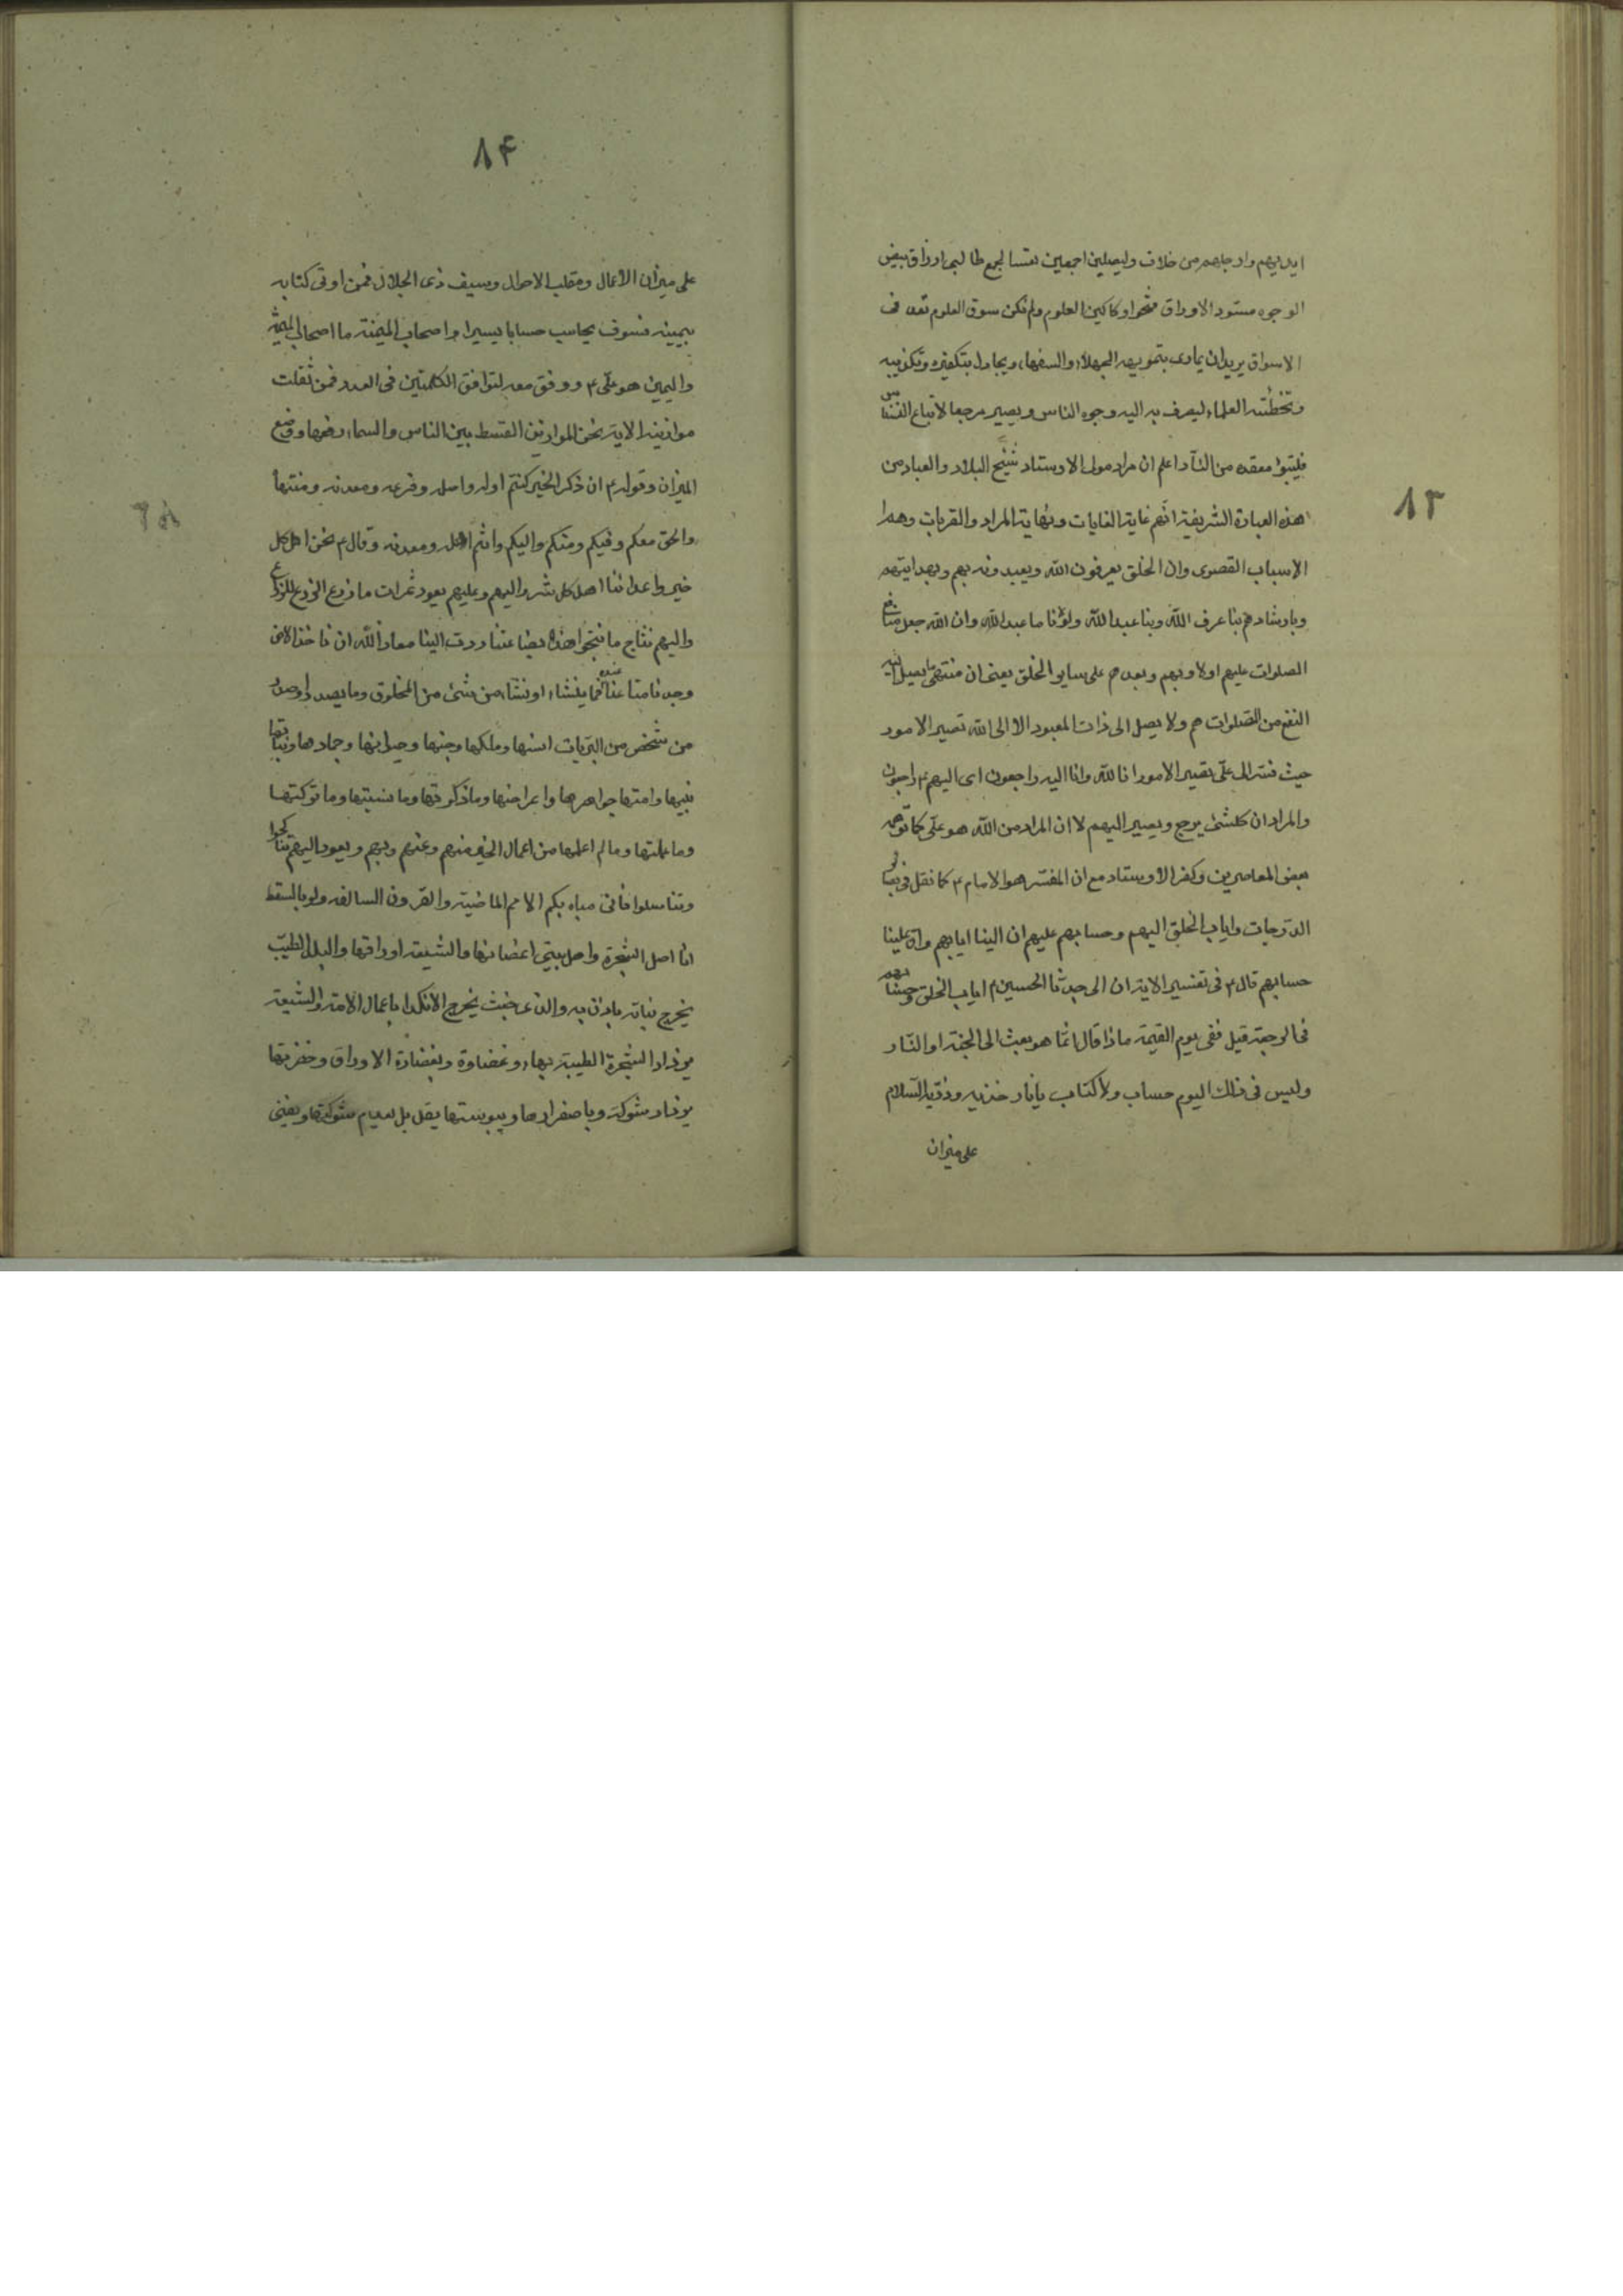 ٨٣
ايديهم وارجلهم من خلاف وليصلبن اجمعين تعتسا لجمع طالبى ارزاق بيض
الوجوه مسّود الاوراق فتحوا دكاكين العلوم ولم تكن سوق العلوم تعد فى
الاسواق يريد ان يمارى بتمويهه الجهلاء والسفهاء ويجادل بتكفيره وتكذيبه
وتخطئته العلماء ليصرف به اليه وجوه الناس ويصير مرجعا لاتباع
فليتبوء مقعده من النار اعلم ان مراد مولى الاوستاد شيخ البلاد والعباد من
هذه العبارة الشريفة انهم غاية الغايات ونهاية المراد والقربات وهم
الاسباب القصوى وان الخلق يعرفون الله ويعبدونه بهم وبهدايتهم
وبارشادهم بنا عرف الله وبنا عبد الله ولولانا ما عبد الله وان الله جعل منافع
الصلوات عليهم اولا وبهم وبعدهم على ساير الخلق يعنى ان منتهى ما يصل اليه
النفع من الصلوات هم ولا يصل الى ذات المعبود الا الى الله تصير الامور
حيث فسّر الى علّى تصير الامور انا لله وانا اليه راجعون اى اليهم ع راجعون
والمراد ان كلشئ يرجع ويصير اليهم لا ان المراد من الله هو علّى كما توهمه
بعض المعاصرين وكفر الاوستاد مع ان المفسّر هو الامام ع كما نقل فى
الدّرجات واياب الخلق اليهم وحسابهم عليهم ان الينا ايابهم وان علينا
حسابهم قال ع فى تفسير الاية ان الى جدنا الحسين ع اياب الخلق وحسابهم
فى الرجعة قيل ففى يوم القيمة ماذا قال انّما هو بعث الى الجنة او النار
وليس فى ذلك اليوم حساب ولا كتاب يا نار خذيه وذريه السلام
على ميزان
٨٤
على ميزان الاعمال ومقلب الاحوال وسيف ذى الجلال فمن اوتى كتابه
بيمينه فسوف يحاسب حسابا يسيرا واصحاب الميمنة ما اصحاب الميمنة
واليمين هو علّى ع ووفق معه لتوافق الكلمتين فى العدد فمن ثقلت
موازينه الاية نحن الموازين القسط بين الناس والسماء رفعها ووضع
الميزان وقوله ع ان ذكر الخير كنتم اوله واصله وفرعه ومعدنه ومنتهاه
والحق معكم وفيكم ومنكم واليكم وانتم اهله ومعدنه وقال ع نحن اصل كل
خير واعدائنا اصل كل شر واليهم وعليهم يعود ثمرات ما زرع الزرع للزراع
واليهم نتاج ما نتجوا هذه بضاعتنا ردت الينا معاذ الله ان ناخذ الا من
وجدنا متاعنا عنده فما ينشاء او ننشاء من شئ من المخلوق وما يصدر او صدر
من شخص من البريات انسها وملكها وجنها وحيوانها وجمادها ونباتها
نبيها وامتها جواهرها واعراضها وما ذكرتها وما نسيتها وما تركتها
وما علمتها وما لم اعلمها من اعمال الخير منهم وعنهم وبهم ويعود اليهم تناكحوا
وتناسلوا فانى مباه بكم الامم الماضية والقرون السالفه ولو بالسقط
انا اصل الشجرة واهل بيتى اغصانها والشيعة اوراقها والبلد الطيب
يخرج نباته باذن ربه والذى خبث لا يخرج الا نكدا باعمال الامة والشيعة
يزداد الشجرة الطيبة بهاء وغضاوة وبغضارة الاوراق وخضرتها
يزداد شوكة وباصفرارها ويبوستها يقل بل ينعدم شوكتها ويفنى